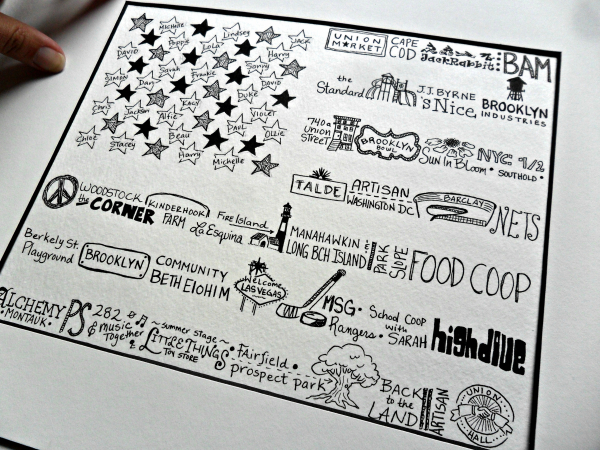 Michelle
Lindsey
Jack
Poppy
Lola
Harry
David
Sarah
Frankie
Sophie
Simon
Dan
David
Chris
Jackson
Kacy
Duke
Violet
Alfie
Paul
Ollie
Chloe
Stacey
Beau
Harry
Michelle
UNION MARKET CAPE COD JackRabbit BAM
the Standard J.J. BYRNE 'sNice BROOKLYN INDUSTRIES
740a UNION STREET BROOKLYN BOWL SUN IN BLOOM NYC 1/2 SOUTHOLD
TALDE ARTISAN WASHINGTON DC BARCLAY NETS
WOODSTOCK the CORNER KINDERHOOK FARM La Esquina FIRE Island MANAHAWKIN LONG BCH ISLAND PARK SLOPE FOOD COOP
Berkely St. Playground BROOKLYN COMMUNITY BETH ElOHIM Welcome LAS VEGAS MSG Rangers School Coop with SARAH highdive
ALCHEMY MONTAUK PS 282 & music Together summer stage LITTLE THINGS TOY STORE Fairfield prospect park BACK to the LAND ARTISAN UNION HALL